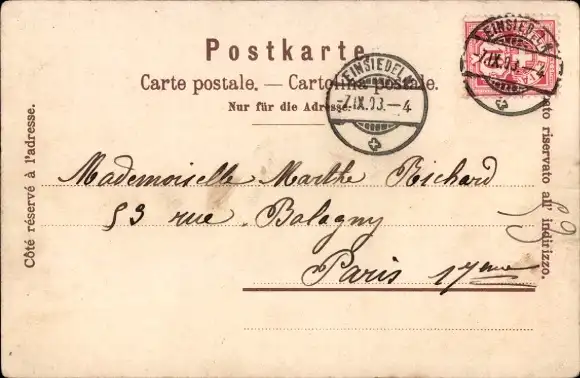 Postkarte.
Carte postale. — Cartolina postale.
Nur für die Adresse.
EINSIEDELN
-7.IX.03.-4
EINSIEDELN
-7.IX.03.-4
Côté réservé à l'adresse.
Lato riservato all' indirizzo.
Mademoiselle Marthe Richard
53 rue Balagny
Paris 17eme
59